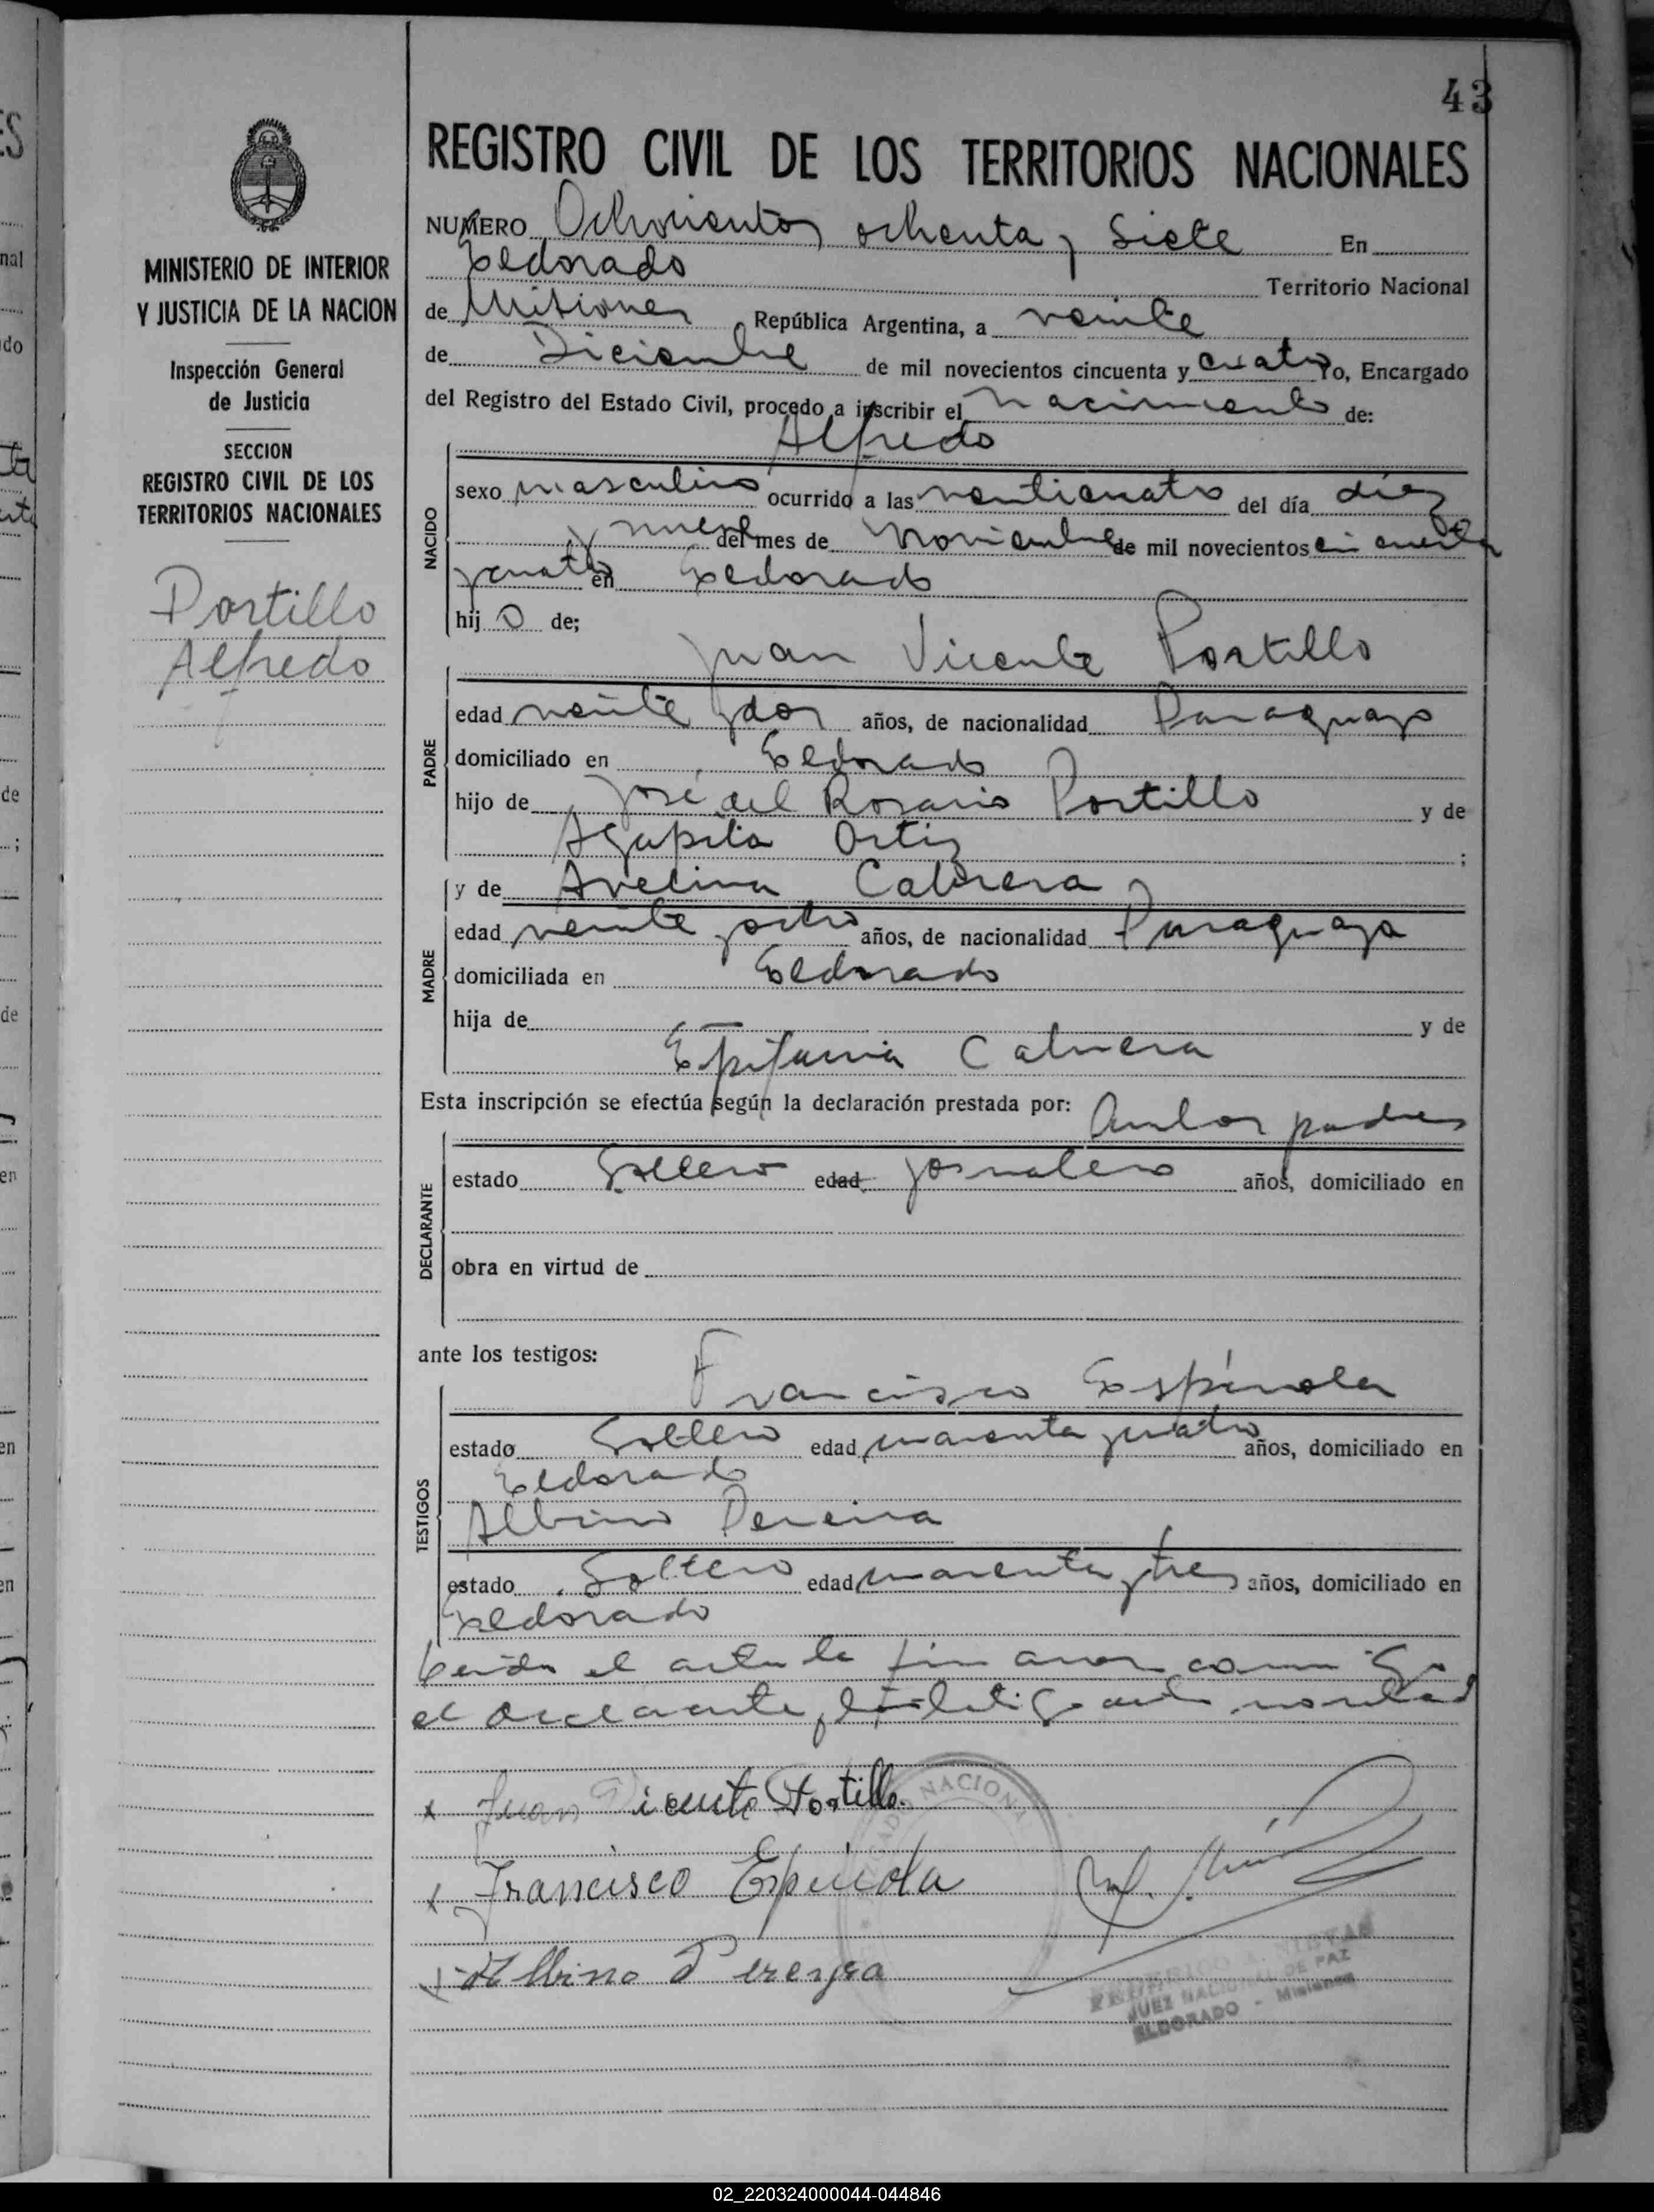 43
REGISTRO CIVIL DE LOS TERRITORIOS NACIONALES
MINISTERIO DE INTERIOR
Y JUSTICIA DE LA NACION
Inspección General
de Justicia
SECCION
REGISTRO CIVIL DE LOS
TERRITORIOS NACIONALES
Portillo
Alfredo
NUMERO Ochocientos ochenta y siete En
Eldorado Territorio Nacional
de Misiones República Argentina, a veinte
de Diciembre de mil novecientos cincuenta y cuatro Yo, Encargado
del Registro del Estado Civil, procedo a inscribir el nacimiento de:
Alfredo
NACIDO
sexo masculino ocurrido a las venticuatro del día diez
y nueve del mes de Noviembre de mil novecientos cincuenta
y cuatro en Eldorado
hij o de;
Juan Vicente Portillo
PADRE
edad veinte y dos años, de nacionalidad Paraguayo
domiciliado en Eldorado
hijo de José del Rosario Portillo y de
Agapita Ortiz ;
y de Avelina Cabrera
MADRE
edad veinte y ocho años, de nacionalidad Paraguaya
domiciliada en Eldorado
hija de y de
Epifania Cabrera
Esta inscripción se efectúa según la declaración prestada por: Ambos padres
DECLARANTE
estado Soltero edad jornalero años, domiciliado en
obra en virtud de
ante los testigos:
Francisco Espínola
TESTIGOS
estado Soltero edad cuarenta y cuatro años, domiciliado en
Eldorado
Albino Pereira
estado Soltero edad cuarenta y tres años, domiciliado en
Eldorado
Leida el acta la firmaron conmigo
el declarante y
x Juan Vicente Portillo.
x Francisco Espinola
x Albino Pereyra
NACIONAL
JUEZ NACIONAL DE PAZ
ELDORADO - Misiones
02_220324000044-044846